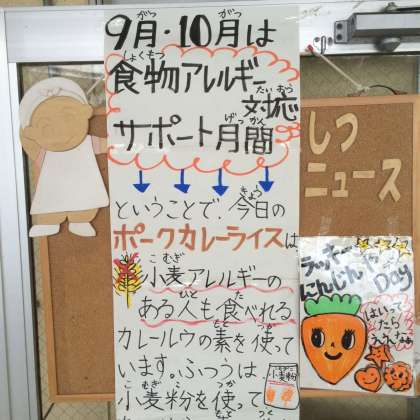 9月・10月は
食物アレルギー
対応
サポート月間
ということで、今日の
ポークカレーライスは
小麦アレルギーの
ある人も食べれる
カレールウの素を使って
います。ふつうは
小麦粉を使って
小麦粉
しつ
ニュース
ラッキー
にんじん
Day
はいって
たら